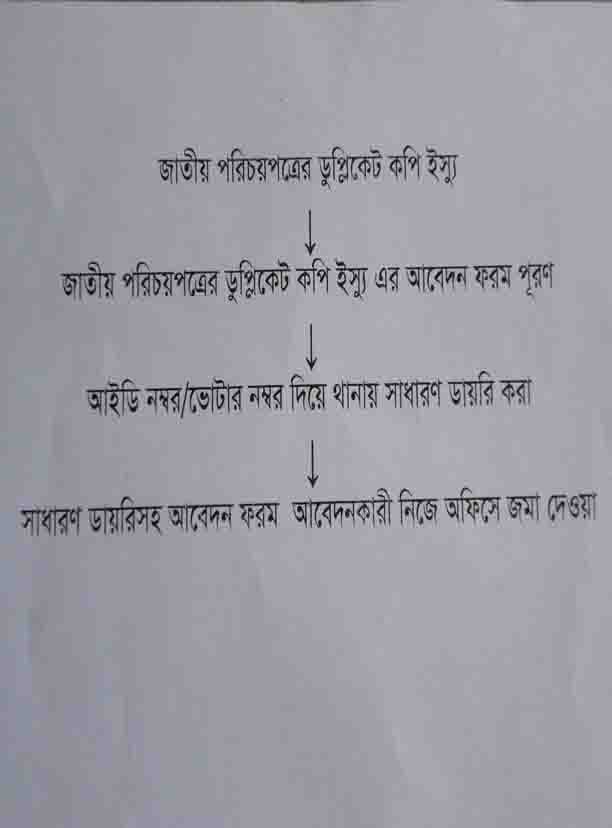 জাতীয় পরিচয়পত্রের ডুপ্লিকেট কপি ইস্যু
জাতীয় পরিচয়পত্রের ডুপ্লিকেট কপি ইস্যু এর আবেদন ফরম পূরণ
আইডি নম্বর/ভোটার নম্বর দিয়ে থানায় সাধারণ ডায়রি করা
সাধারণ ডায়রিসহ আবেদন ফরম আবেদনকারী নিজে অফিসে জমা দেওয়া